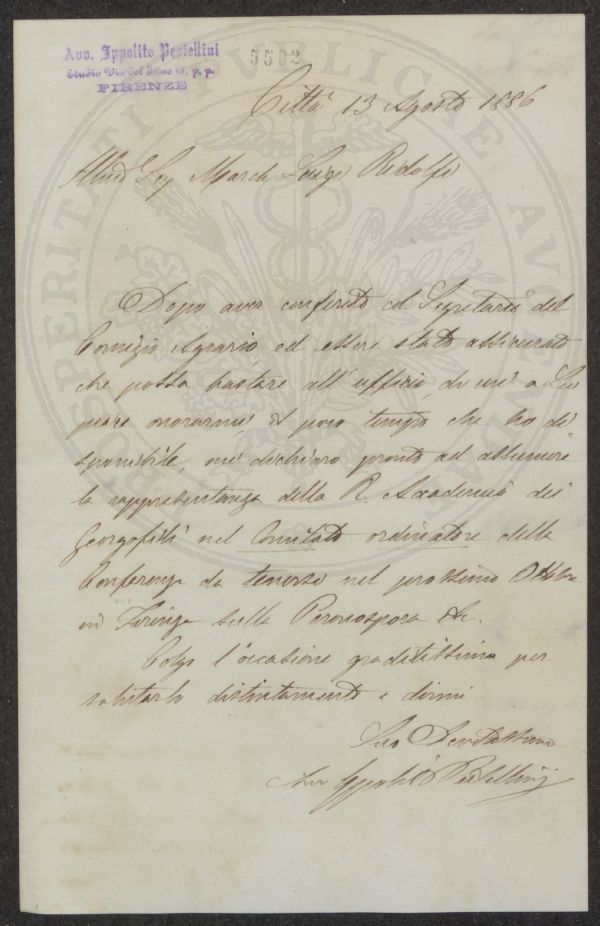 Avv. Ippolito Pestellini
Studio Via del 13, p. p.
FIRENZE
5502
Città 13 Agosto 1886
Sig March Luigi Ridolfi
Dopo aver conferito col Segretario del
Comizio Agrario, ed essere stato assicurato
che possa bastare all'uffizio, di cui a Lei
piace onorarmi il poco tempo che ho di
sponibile, mi dichiaro pronto ad assumere
la rappresentanza della R. Accademia dei
Georgofili nel Comitato ordinatore della
Conferenza da tenersi nel prossimo Ottobre
in Firenze sulla Peronospora &c.
Colgo l'occasione graditissima per
salutarlo distintamente e dirmi
Suo Devotissimo
Avv Ippolito Pestellini
PROSPERITATI PUBLICAE AUGENDAE